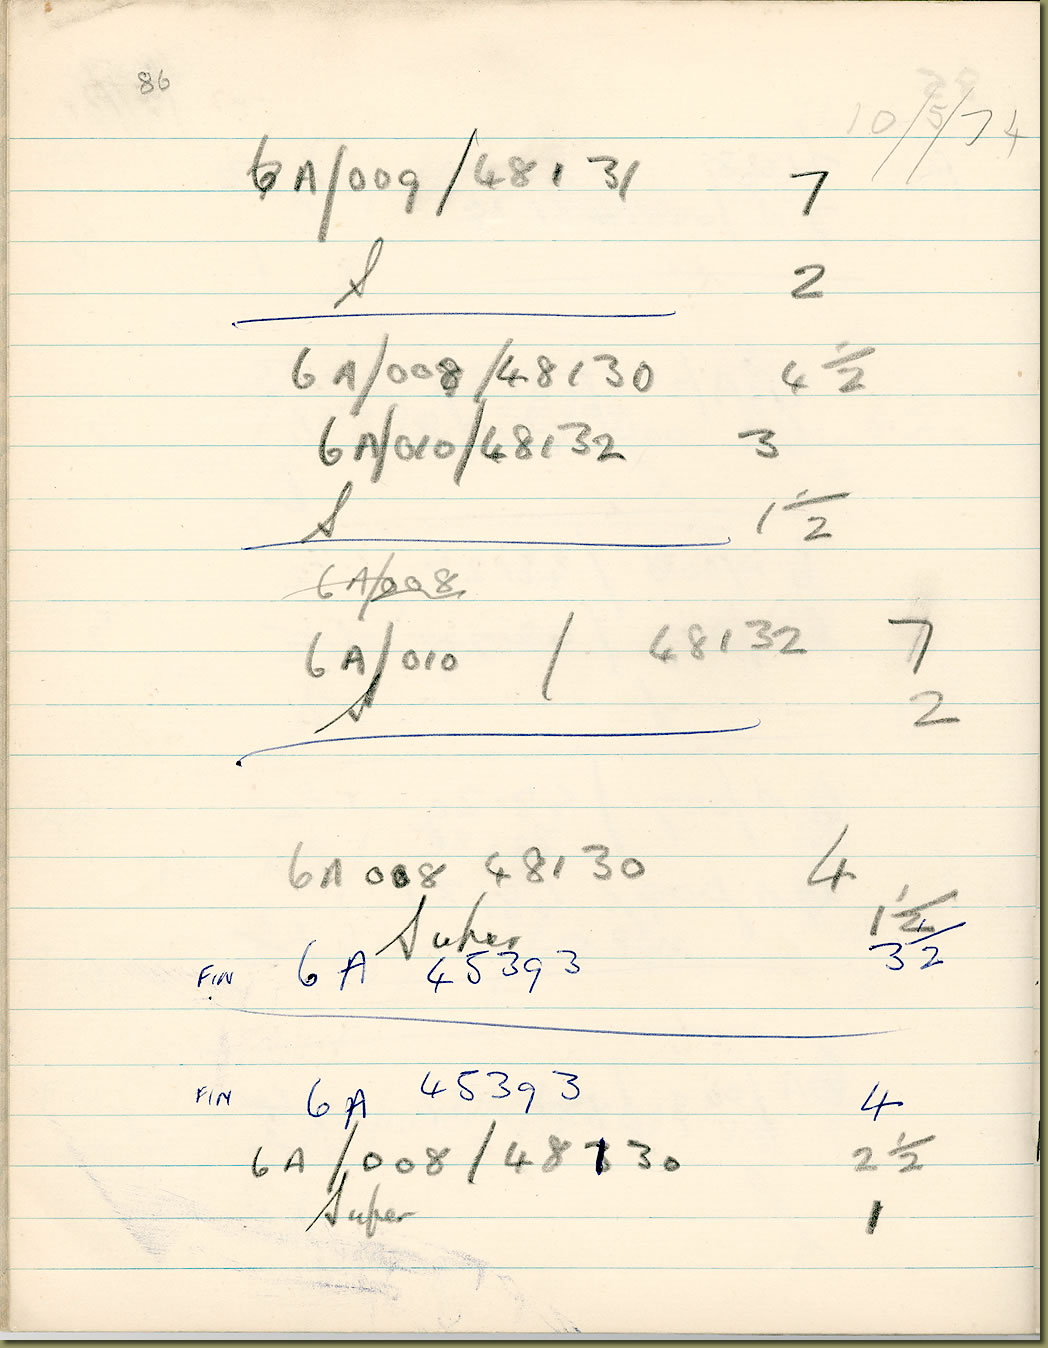 86
10/5/74
6A/009/48131 7
S 2
6A/008/48130 4 1/2
6A/010/48132 3
S 1 1/2
6A/008
6A/010 / 48132 7
S 2
6A 008 48130 4
Super 1 1/2
FIN 6A 45393 3 1/2
FIN 6A 45393 4
6A/008/48130 2 1/2
Super 1